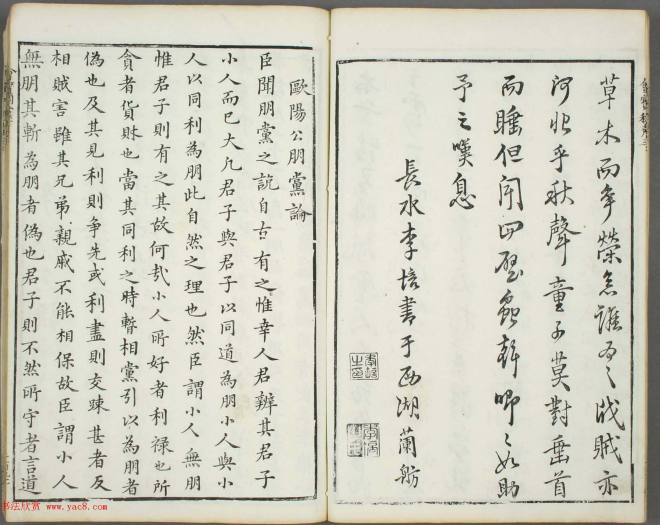 草木而争榮念誰為之戕賊亦
何恨乎秋聲童子莫對垂首
而睡但聞四壁蟲聲唧〻如助
予之嘆息
長水李培書于西湖蘭舫
歐陽公朋黨論
臣聞朋黨之說自古有之惟幸人君辨其君子
小人而已大凡君子與君子以同道為朋小人與小
人以同利為朋此自然之理也然臣謂小人無朋
惟君子則有之其故何哉小人所好者利祿也所
貪者貨財也當其同利之時暫相黨引以為朋者
偽也及其見利則爭先或利盡則交踈甚者反
相賊害雖其兄弟親戚不能相保故臣謂小人
無朋其暫為朋者偽也君子則不然所守者言道
书法欣赏 www.yac8.com